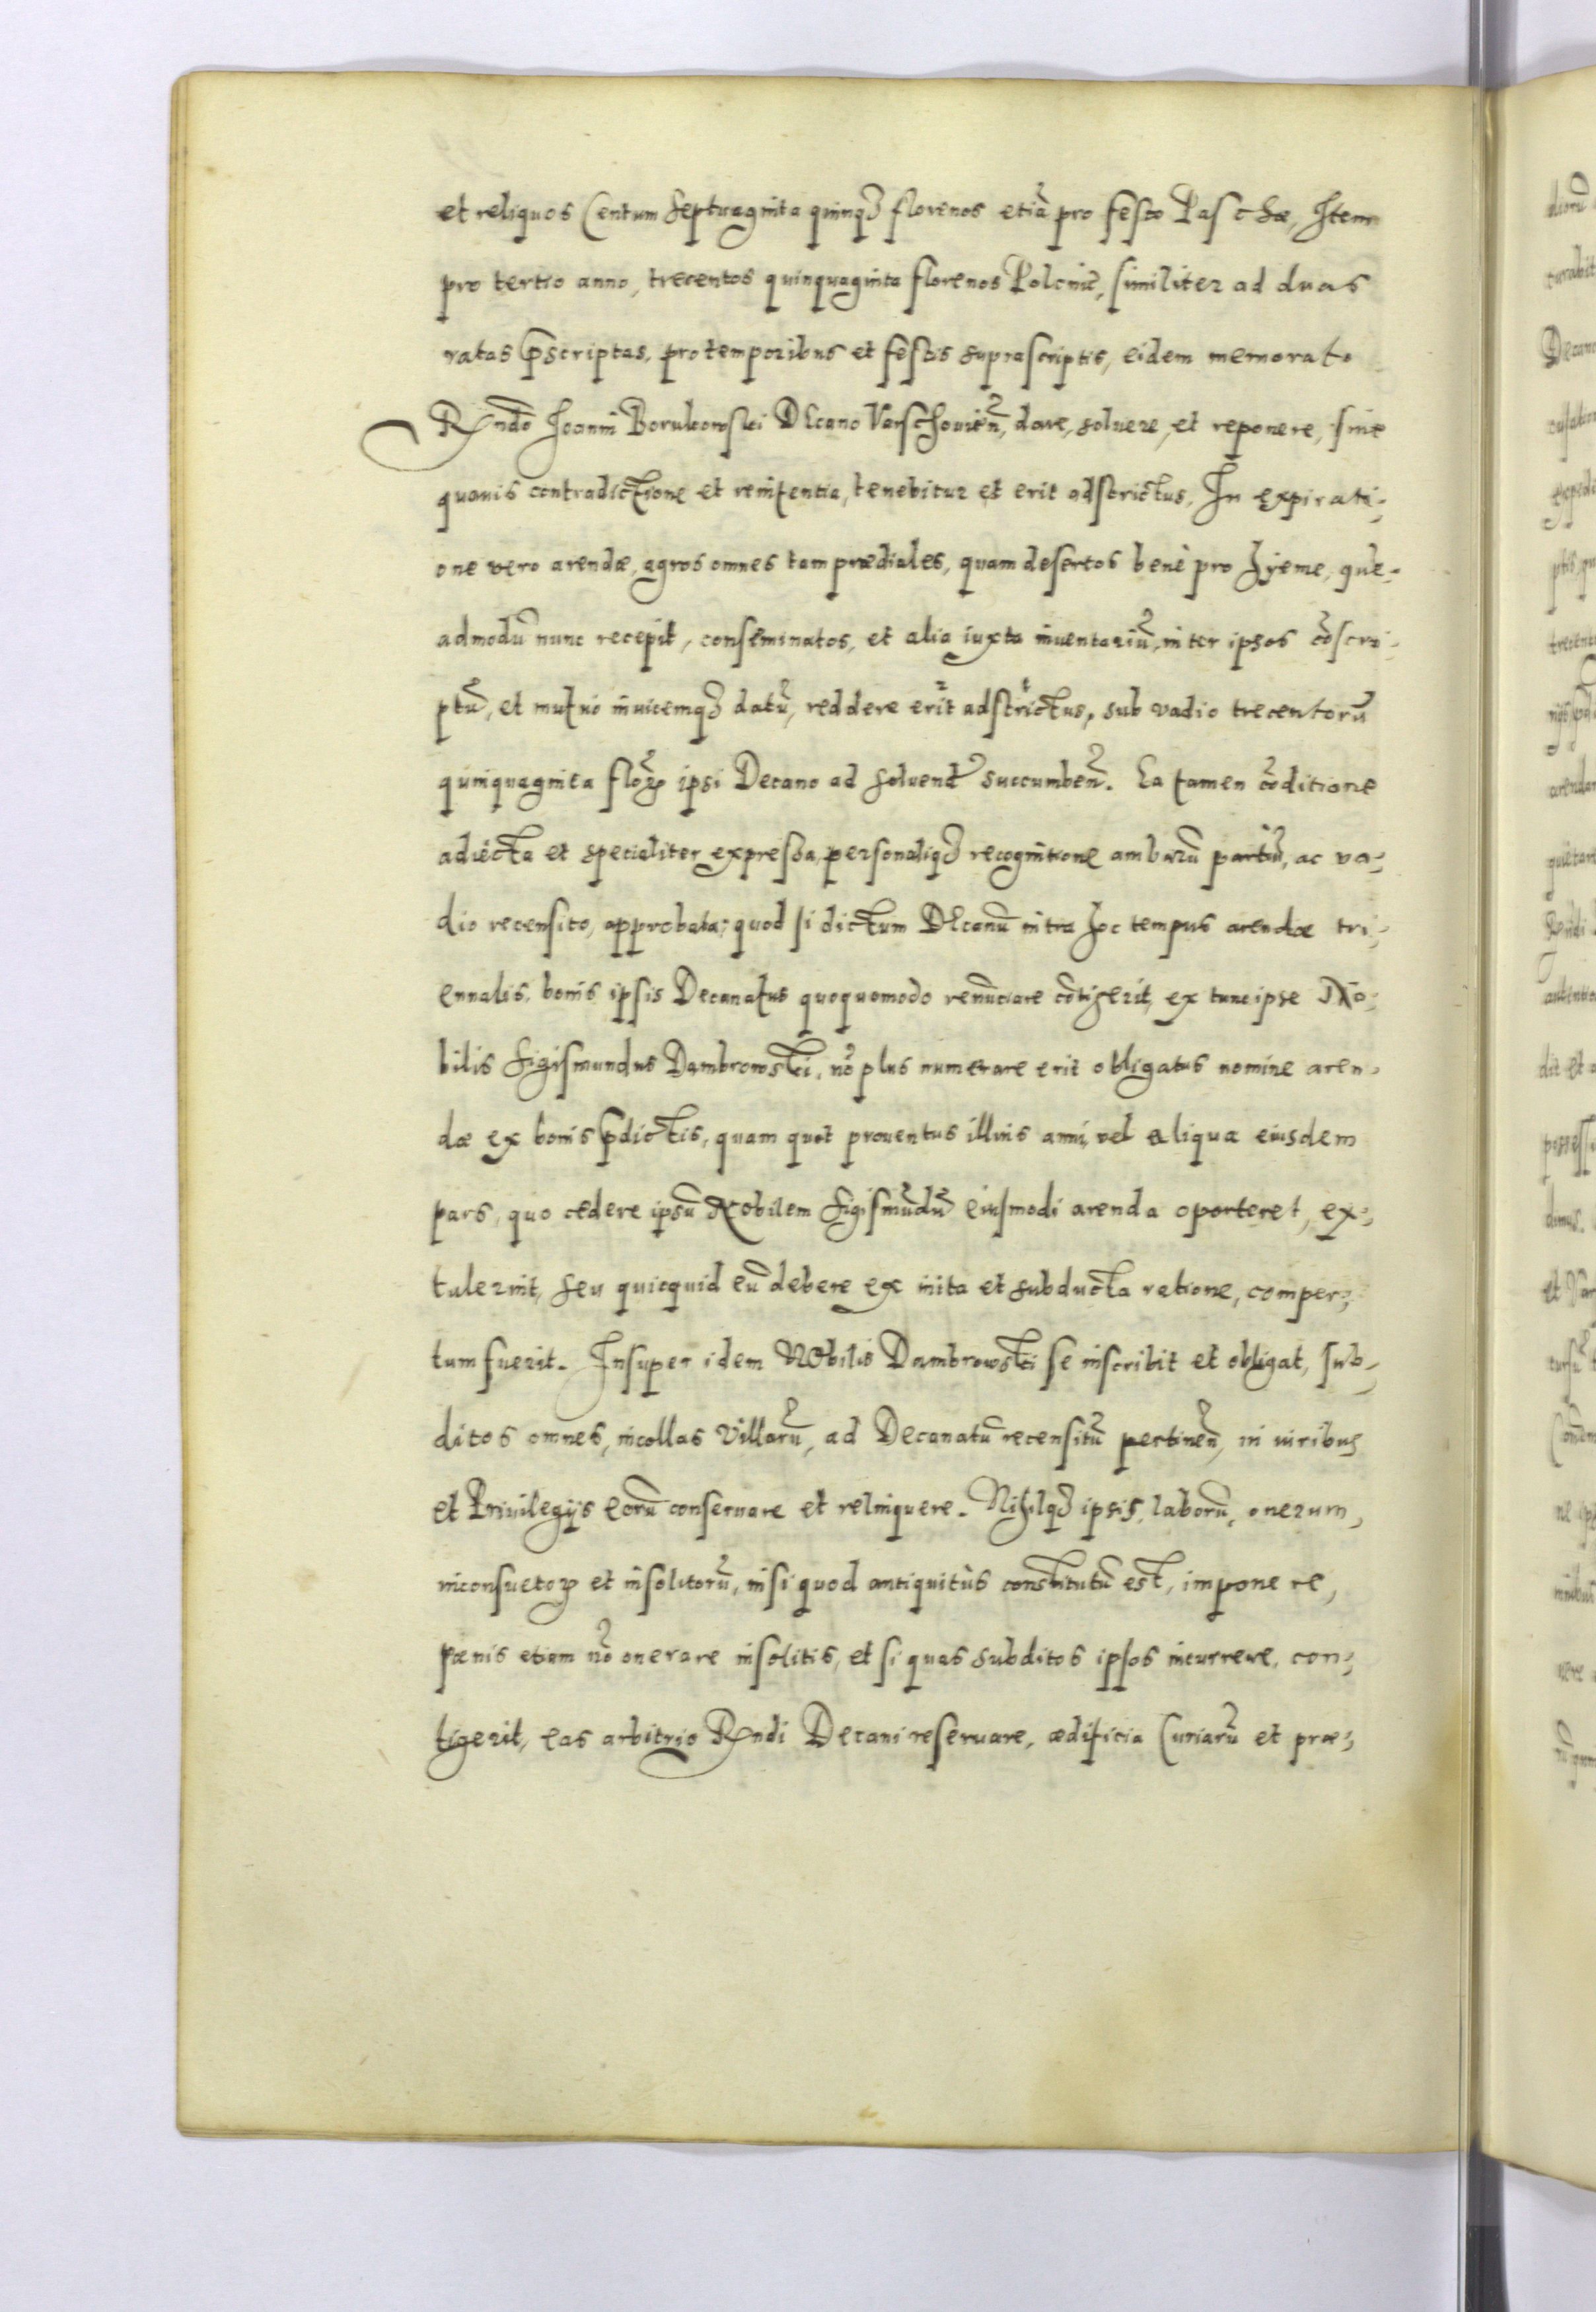 et reliquos Centum septuaginta quinq3 florenos etiā pro festo Paschæ, Item
pro tertio anno, trecentos quinquaginta florenos Polonie, similiter ad duas
ratas p̄scriptas, pro temporibus et festis suprascriptis, eidem memorato
Rndō Ioanni Borukowski Decano Varschouieñ, dare, soluere, et reponere, sine
quauis contradictione et renitentia, tenebitur et erit adstrictus. In expirati-
one vero arendæ, agros omnes tam prædiales, quam desertos benè pro hyeme, que-
admodū nunc recepit, conseminatos, et alia iuxta inuentariū, inter ipsos cōscri-
ptū, et mutuo inuicemq3 datū, reddere erit adstrictus, sub vadio trecentorū
quinquaginta floꝝ ipsi Decano ad soluend succumbeñ. Ea tamen cōditione
adiecta et specialiter expressa, personaliq3 recognitione ambarū partiū, ac va-
dio recensito, approbata; quod si dictum Decanū intra hoc tempus arendæ tri-
ennalis, bonis ipsis Decanatus quoquomodo renūciare cōtigerit, ex tunc ipse No-
bilis Sigismundus Dambrowski, nō plus numerare erit obligatus nomine aren-
dæ ex bonis p̄dictis, quam quot prouentus illius anni, vel aliqua eiusdem
pars, quo cedere ipsū Nobilem Sigismūdū eiusmodi arenda oporteret, ex-
tulerint, seu quicquid eū debere ex inita et subducta ratione, comper-
tum fuerit. Insuper idem Nobilis Dambrowski se inscribit et obligat, sub-
ditos omnes, incollas Villarū, ad Decanatū recensitū pertineñ, in iuribus
et Priuilegijs eorū conseruare et relinquere. Nihilq3 ipsis, laborū, onerum,
inconsuetoꝝ et insolitorū, nisi quod antiquitùs constitutū est, imponere,
pœnis etiam nō onerare insolitis, et si quas subditos ipsos incurrere, con-
tigerit, eas arbitrio Rndi Decani reseruare, ædificia Curiarū et præ-